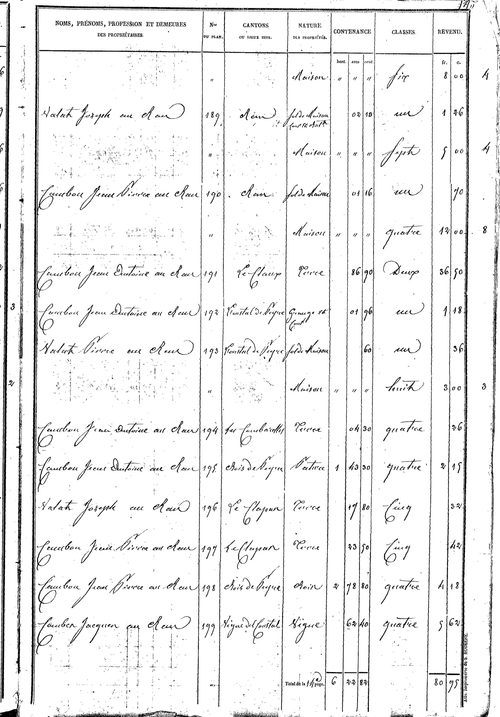 NOMS, PRÉNOMS, PROFESSION ET DEMEURES DES PROPRIÉTAIRES. Nos DU PLAN. CANTONS NATURE DES PROPRIÉTÉS. CONTENANCE. CLASSES. REVENU.
hect. ares cent. fr. c.
" Maison " " " six 8 00 4
Valat Joseph au Mas 189 Mas sol de Maison 02 10 un 1 26
" Maison " " " sept 5 00 4
Cambon Jean Pierre au Mas 190 Mas sol de Maison 01 16 un 70
" Maison " " " quatre 12 00 8
Cambon Jean Antoine au Mas 191 Le Claux Terre 86 90 Deux 36 50
Cambon Jean Antoine au Mas 192 01 96 un 1 18
3
Valat Pierre au Mas 193 sol de Maison 60 un 36
" Maison " " " huit 3 00 3
2
Cambon Jean Antoine au Mas 194 Terre 04 30 quatre 26
Cambon Jean Antoine au Mas 195 Pature 1 43 30 quatre 2 15
Valat Joseph au Mas 196 Terre 17 80 Cinq 32
Cambon Jean Pierre au Mas 197 Terre 23 50 Cinq 42
Cambon Jean Pierre au Mas 198 2 78 80 quatre 4 18
Jacques au Mas 199 Vigne 62 40 quatre 5 62
Total de la page. 6 22 82 80 95